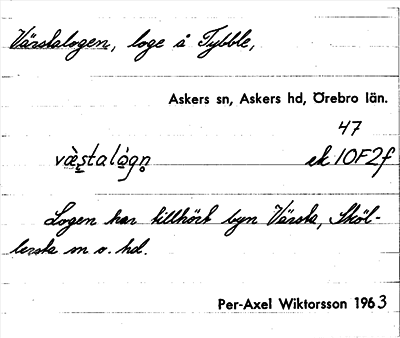 Värstalogen, loge å Tybble,
Askers sn, Askers hd, Örebro län.
47
væ̀s̱talȧ̀gn̥ ek 10F2f
Logen har tillhört byn Värsta, Sköl-
lersta sn o. hd.
Per-Axel Wiktorsson 1963